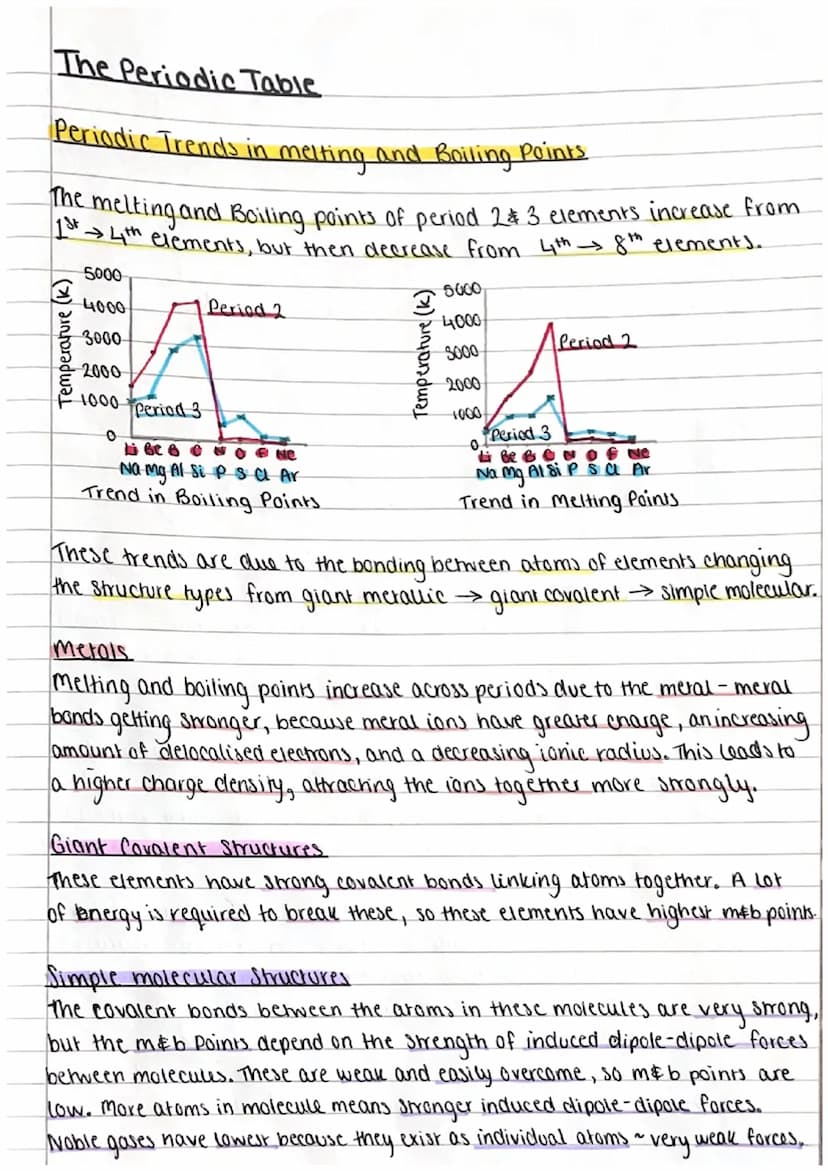 The Periodic Table
Periodic Trends in melting and Boiling Points
The melting and Boiling points of period 2 & 3 elements increase from
1st → 4th elements, but then decrease from 4th → 8th elements.
Temperature (K)
5000
4000
3000
2000
1000
0
Period 2
Period 3
Li Be B C N O F Ne
Na Mg Al Si P S Cl Ar
Trend in Boiling Points
Temperature (K)
5000
4000
3000
2000
1000
0
Period 2
Period 3
Li Be B C N O F Ne
Na Mg Al Si P S Cl Ar
Trend in Melting Points
These trends are due to the bonding between atoms of elements changing
the structure types from giant metallic → giant covalent → simple molecular.
Metals
Melting and boiling points increase across periods due to the metal-metal
bonds getting stronger, because metal ions have greater charge, an increasing
amount of delocalised electrons, and a decreasing ionic radius. This leads to
a higher charge density, attracting the ions together more strongly.
Giant Covalent Structures
These elements have strong covalent bonds linking atoms together. A Lot
of energy is required to break these, so these elements have highest m&b points.
Simple molecular Structures
The covalent bonds between the atoms in these molecules are very strong,
but the m&b Points depend on the strength of induced dipole-dipole forces
between molecules. These are weak and easily overcome, so m&b points are
low. More atoms in molecule means stronger induced dipole-dipole forces.
Noble gases have lowest because they exist as individual atoms ~ very weak forces.